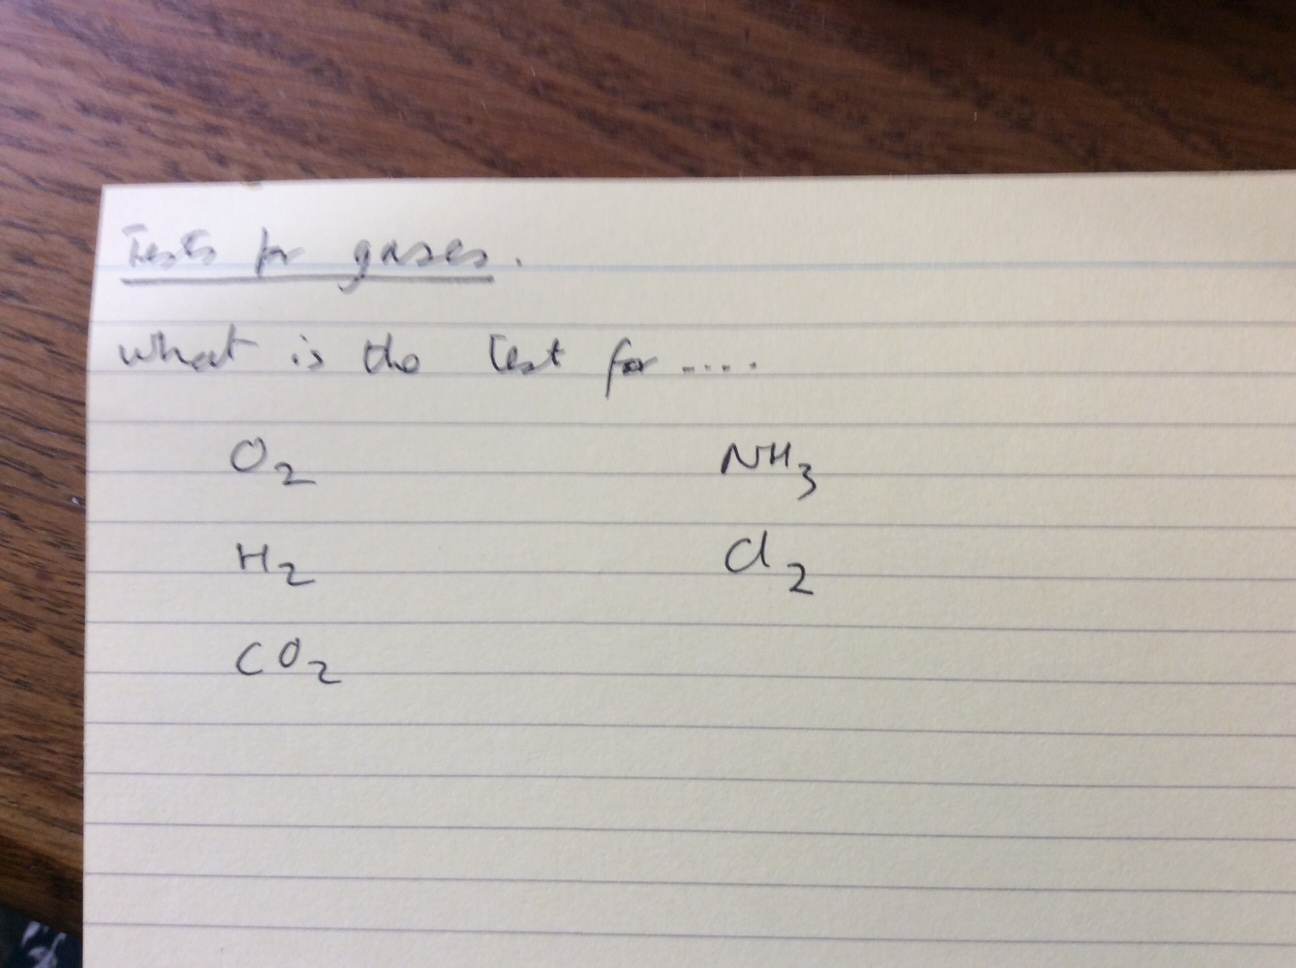 Tests for gases.
What is the test for ....
O2 NH3
H2 Cl2
CO2